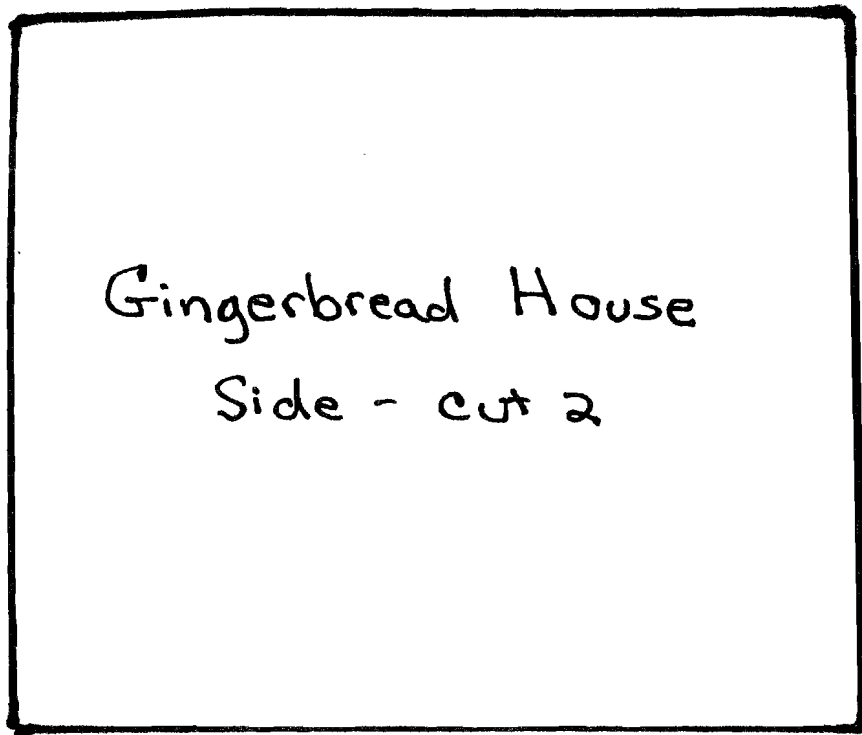 Gingerbread House
Side - cut 2